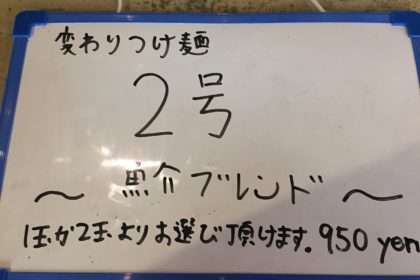 変わりつけ麺
2号
～魚介ブレンド～
1玉か2玉よりお選び頂けます。950 yen